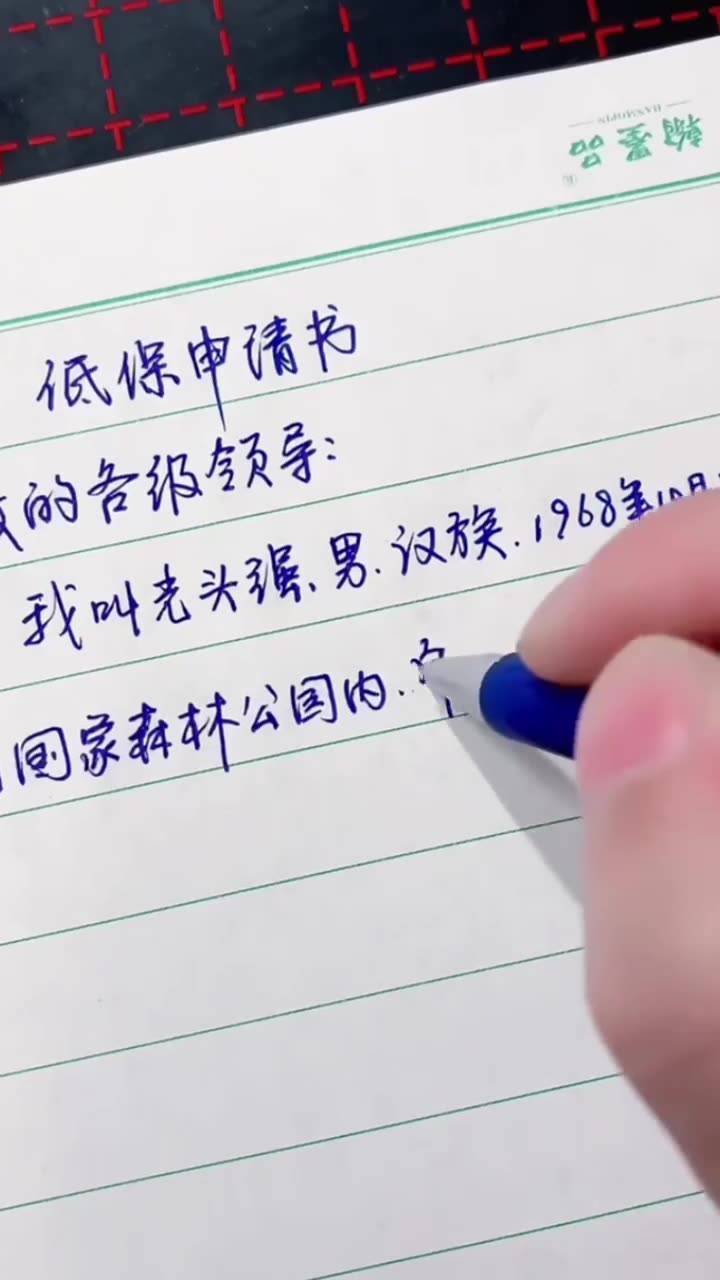 翰墨品
HANMOPIN
低保申请书
的各级领导:
我叫光头强、男、汉族、1968年10月
国家森林公园内、